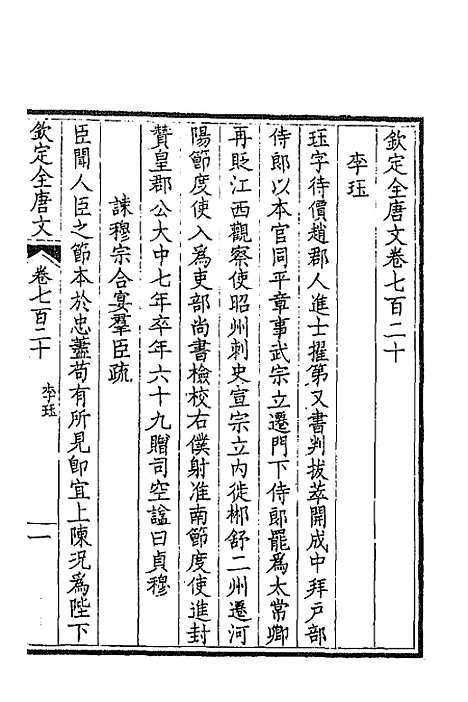 欽定全唐文卷七百二十
李珏
珏字待價趙郡人進士擢第又書判拔萃開成中拜戶部
侍郎以本官同平章事武宗立遷門下侍郎罷爲太常卿
再貶江西觀察使昭州刺史宣宗立內徙郴舒二州遷河
陽節度使入爲吏部尚書檢校右僕射淮南節度使進封
贊皇郡公大中七年卒年六十九贈司空諡曰貞穆
諫穆宗合宴羣臣疏
臣聞人臣之節本於忠藎苟有所見卽宜上陳況爲陛下
欽定全唐文
卷七百二十
李珏
一